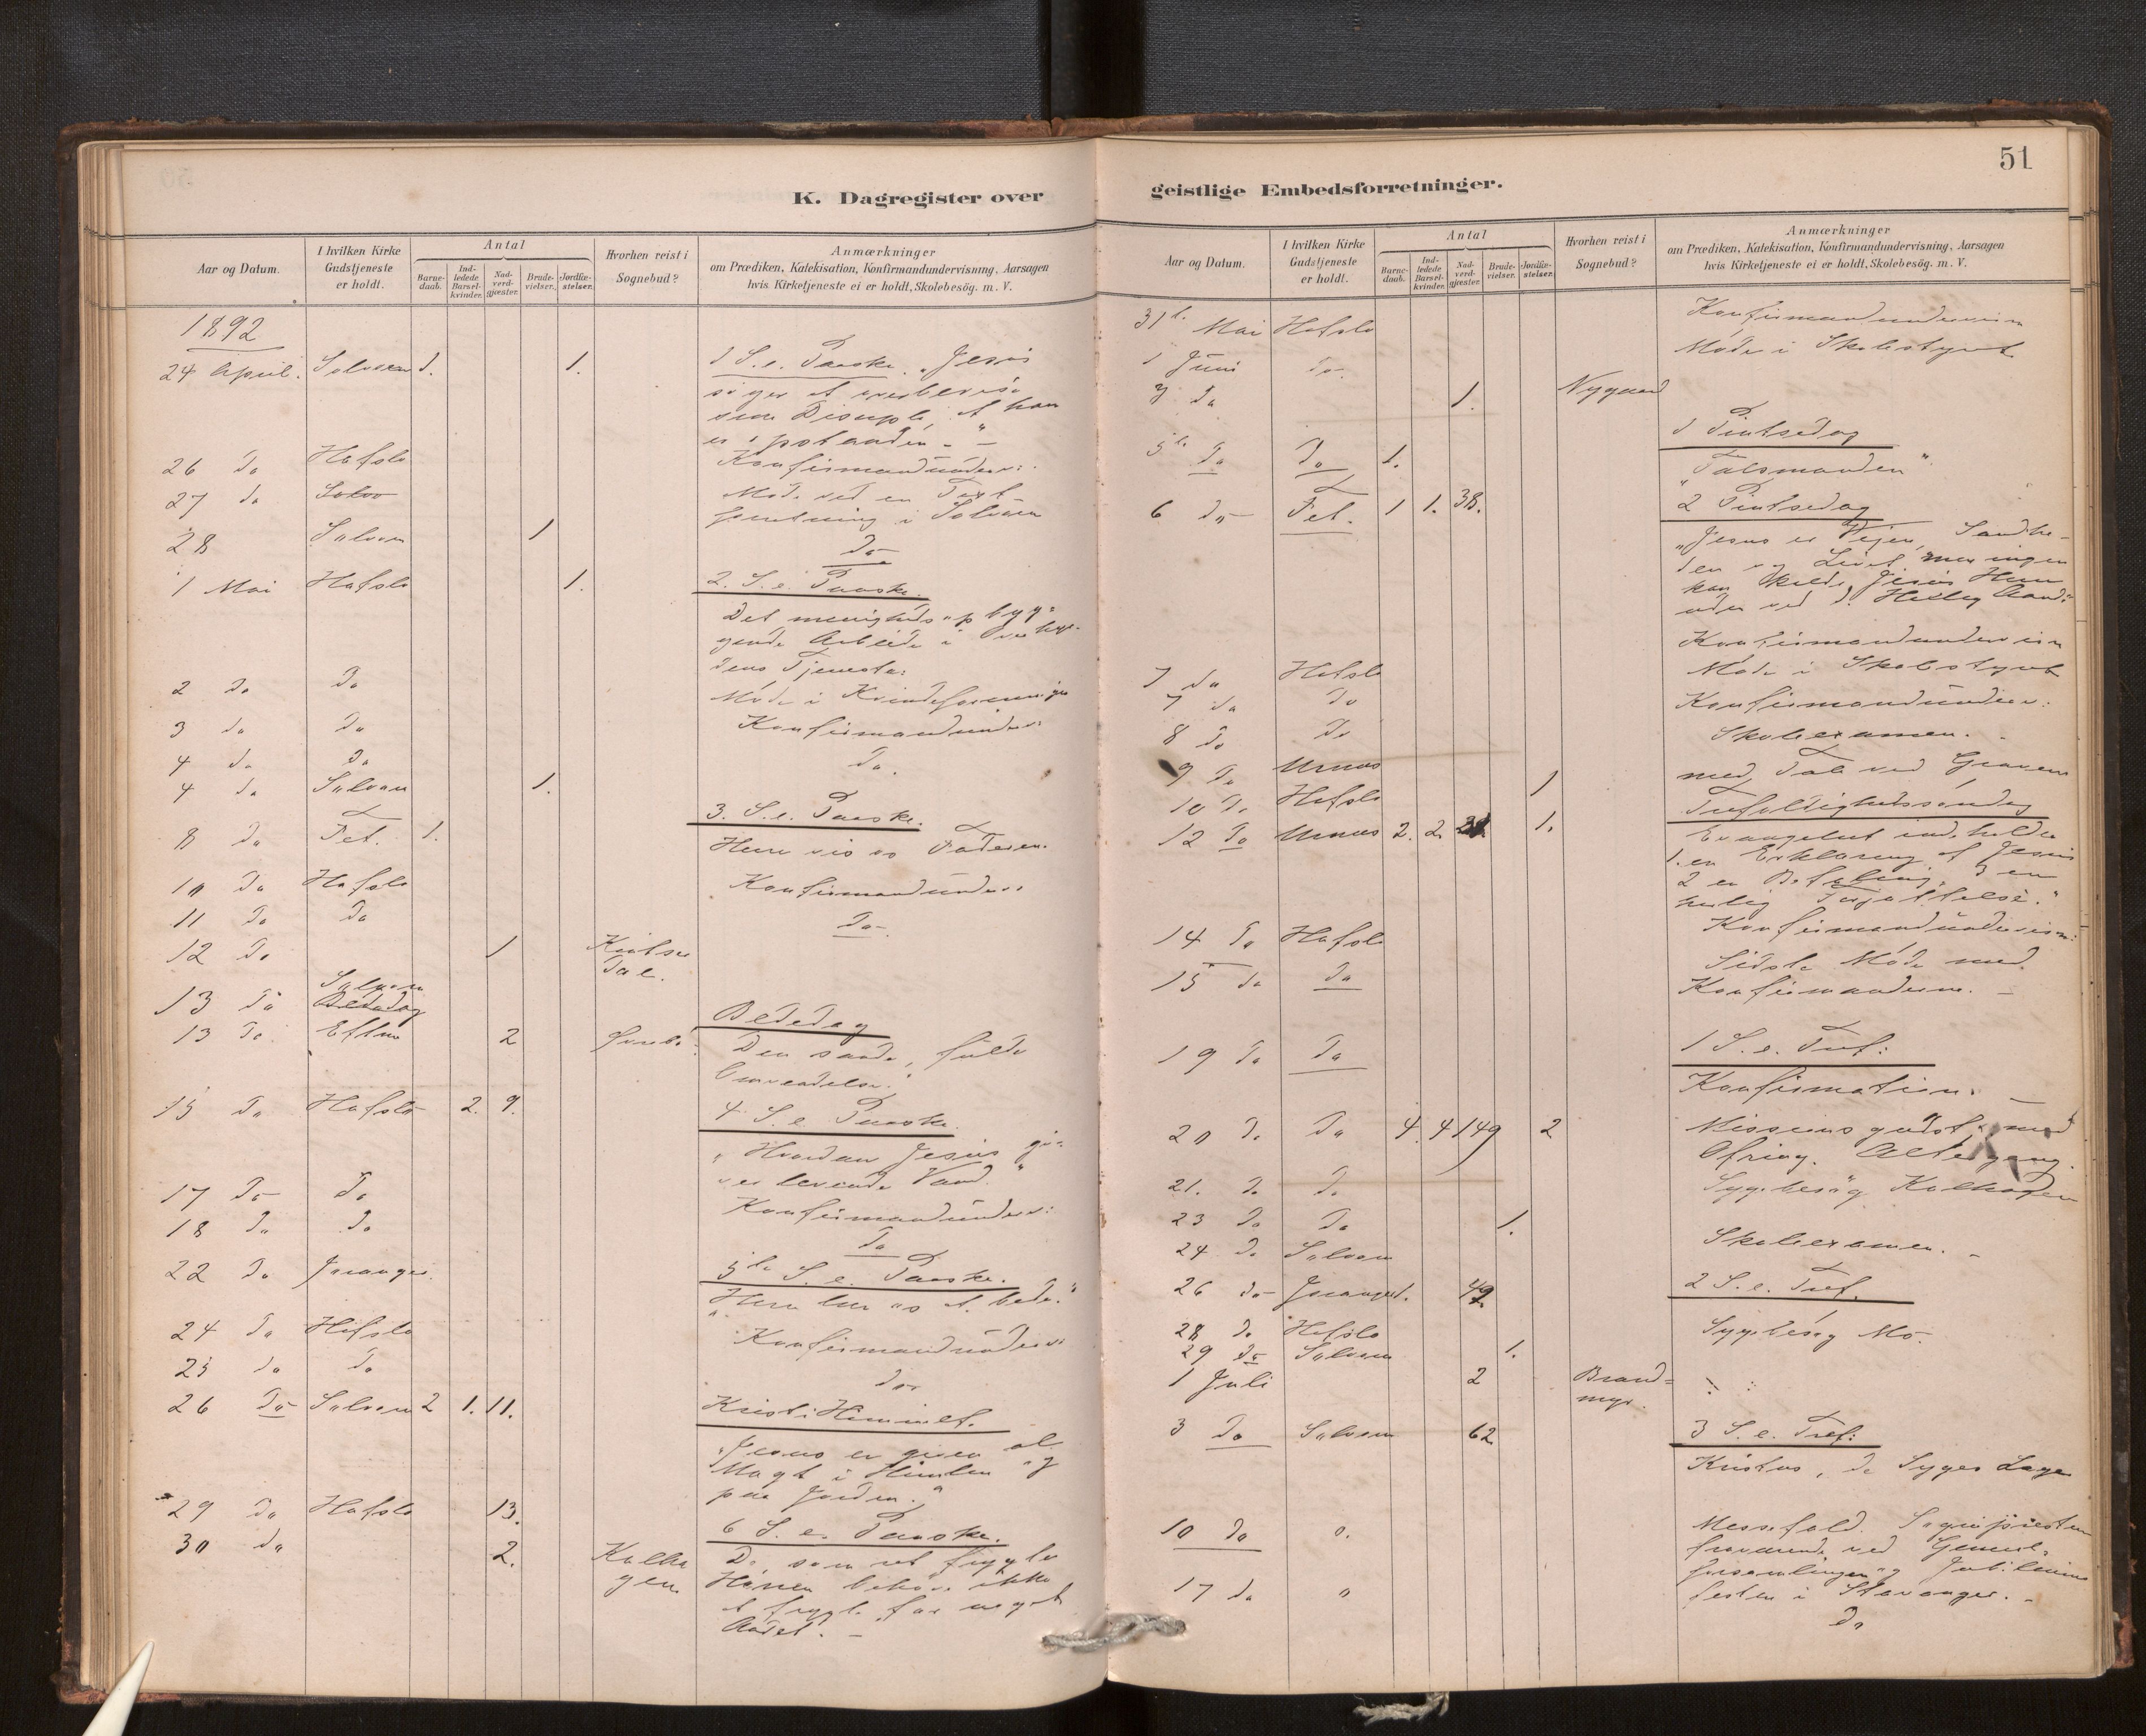 51
K. Dagregister over
geistlige Embedsforretninger.
Aar og Datum.
I hvilken Kirke Gudstjeneste er holdt.
Antal
Barne-daab.
Ind-ledede Barsel-kvinder.
Nad-verd-gjæster.
Brude-vielser.
Jordfæ-stelser.
Hvorhen reist i Sognebud?
Anmærkninger
om Prædiken, Katekisation, Konfirmandundervisning, Aarsagen
hvis Kirketjeneste ei er holdt, Skolebesög. m. V.
1892
24 April. Solvorn 1. 1. 1 S. e. Paaske. „Jesus
söger at overbevise
sine Disciple, at han
er opstanden.
26 do Hafslo Konfirmandunderv:
27 do Møde ved en
forretning i Solvorn
28 Solvorn 1 do
1 Mai Hafslo 1. 2. S. e. Paaske.
Det menighedsopbyg-
gende Arbeide i
dens Tjeneste.
2 do do Møde i Kvindeforeningen
3 do do Konfirmandunder:
4 do do do.
4 do Solvorn 1.
8 do Fet. 1. 3. S. e. Paaske.
Herre vis os Faderen.
10 do Hafslo Konfirmandunderv:
11 do do do
12 do 1
13 do Solvorn
Bededag
13 do 2 Bededag
Den sande, fulde
Omvendelse.
15 do Hafslo 2. 9. 4 S. e. Paaske.
„Hvordan Jesus gi-
ver levende Vand."
17 do do Konfirmandunderv:
18 do do do
22 do Joranger 5te S. e. Paaske.
„Herre lær os at bede."
24 do Hafslo Konfirmandunderv:
25 do do do
26 do Solvorn 2 1. 11. Kristi Himmelf.
„Jesus er given al
Magt i Himlen og
paa Jorden."
29 do Hafslo 13. 6 S. e. Paaske.
30 do 2. De som ret frygte
Herren behöve ikke
at frygte for noget
Andet.
Aar og Datum.
I hvilken Kirke Gudstjeneste er holdt.
Antal
Barne-daab.
Ind-ledede Barsel-kvinder.
Nad-verd-gjæster.
Brude-vielser.
Jordfæ-stelser.
Hvorhen reist i Sognebud?
Anmærkninger
om Prædiken, Katekisation, Konfirmandundervisning, Aarsagen
hvis Kirketjeneste ei er holdt, Skolebesög. m. V.
31te Mai Hafslo Konfirmandundervisn
1 Juni do. Møde i Skolestyret
3 do 1. Nygaard
5te do do 1. 1 Pintsedag
„Talsmanden"
6 do Fet. 1 1. 38. 2 Pintsedag
„Jesus er Vejen, Sandhe-
den og Livet, men ingen
kan kalde Jesus Herre
uden ved d. Hellig Aand."
Konfirmandundervisn
7 do Hafslo Møde i Skolestyret
7 do do Konfirmandunderv:
8 do do Skoleexamen.
9 do Urnes
10 do Hafslo 1 med Tale ved Graven
12 do Urnes 2. 2. 1. Trefoldighedssöndag
Evangeliet indeholder
1. en Erklæring af Jesus
2 en Befaling, 3 en
herlig Forjættelse."
14 do Hafslo Konfirmandundervisn:
15 do do Sidste Møde med
Konfirmanderne.
19 do do 1 S. e. Tref:
Konfirmation.
20 do do 4. 4 149 2 Missionsgudst: med
Ofring. Altergang.
21. do do Sygebesög Kalhagen
23 do do 1.
24 do Solvorn Skoleexamen.
26 do Joranger. 2 S. e. Tref.
28 do Hafslo Sygebesög Mo.
29 do Solvorn 1.
1 Juli 2 Brand-
myr.
3 do Solvorn 62 3 S. e. Tref:
Kristus, de Syges Læge
10 do o. Messefald. Sognepresten
fraværende ved General-
forsamlingen og Jubilæums
festen i Stavanger.
17 do " do